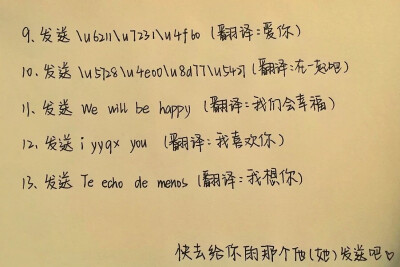 9、发送 \u6211\u7231\u4f60 (翻译:爱你)
10、发送 \u5728\u4e00\u8d77\u5427 (翻译:在一起吧)
11、发送 We will be happy (翻译:我们会幸福)
12、发送 i yyqx you (翻译:我喜欢你)
13、发送 Te echo de menos (翻译:我想你)
快去给你的那个他(她)发送吧♡